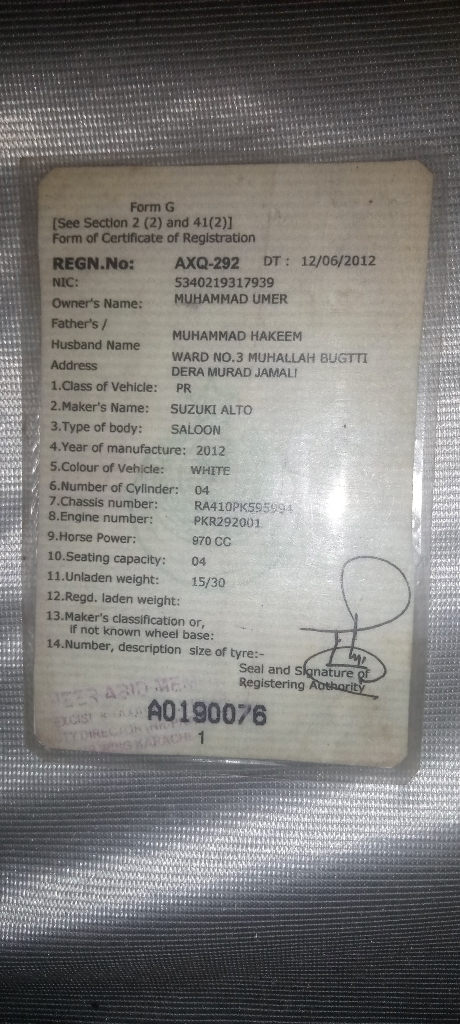 Form G
[See Section 2 (2) and 41(2)]
Form of Certificate of Registration
REGN.No: AXQ-292 DT : 12/06/2012
NIC: 5340219317939
Owner's Name: MUHAMMAD UMER
Father's /
Husband Name MUHAMMAD HAKEEM
Address WARD NO.3 MUHALLAH BUGTTI
DERA MURAD JAMALI
1.Class of Vehicle: PR
2.Maker's Name: SUZUKI ALTO
3.Type of body: SALOON
4.Year of manufacture: 2012
5.Colour of Vehicle: WHITE
6.Number of Cylinder: 04
7.Chassis number: RA410PK595994
8.Engine number: PKR292001
9.Horse Power: 970 CC
10.Seating capacity: 04
11.Unladen weight: 15/30
12.Regd. laden weight:
13.Maker's classification or,
if not known wheel base:
14.Number, description size of tyre:-
Seal and Signature of
Registering Authority
A0190076
KARACHI
1